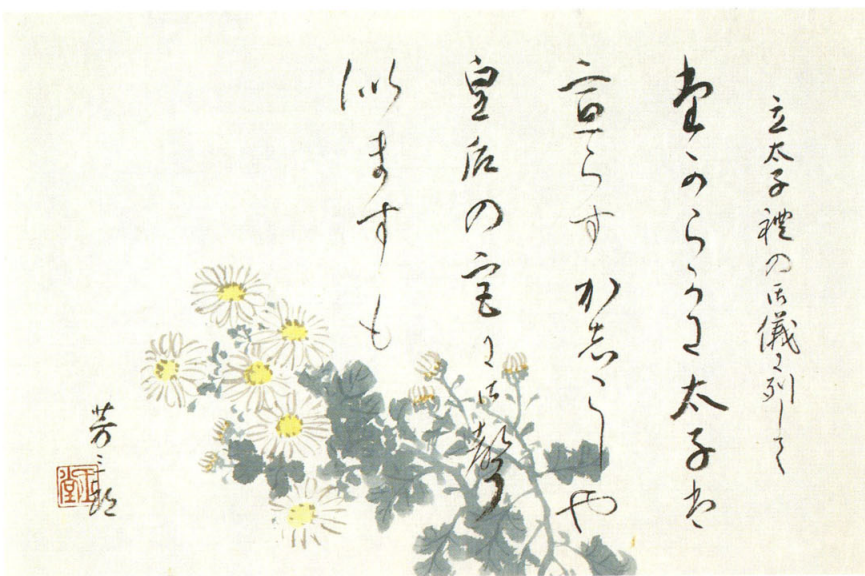 立太子禮の御儀に列して
たからかに太子は
宣らすかしこしや
皇后の宮に御聲
似ますも
芳三郎